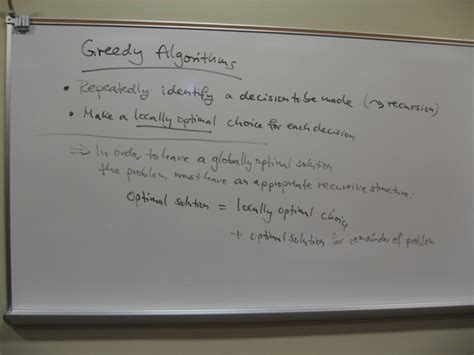 Greedy Algorithms
• Repeatedly identify a decision to be made (⇝ recursion)
• Make a locally optimal choice for each decision
⇒ In order to have a globally optimal solution
the problem must have an appropriate recursive structure:
Optimal solution = locally optimal choice
+ optimal solution for remainder of problem